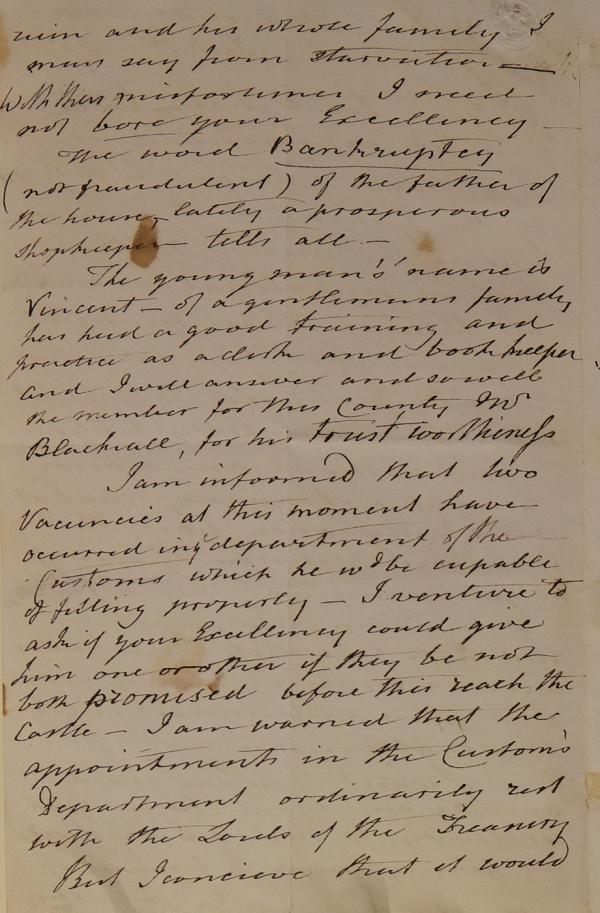 ruin and his whole family I
may say from starvation —
With their misfortunes I need
not bore your Excellency —
The word Bankruptcy
(not fraudulent) of the father of
the house, lately a prosperous
shopkeeper — tells all —
The young man's name is
Vincent — of a gentlemans family
has had a good training and
practice as a clerk and bookkeeper
and I will answer and so will
the member for this County Mr
Blackall, for his trust worthiness
I am informed that two
Vacancies at this moment have
occurred in y department of the
Customs which he wd be capable
of filling properly — I venture to
ask if your Excellency could give
him one or other if they be not
both promised before this reach the
Castle — I am warned that the
appointments in the Custom's
Department ordinarily rest
with the Lords of the Treasury
But I concieve that it would